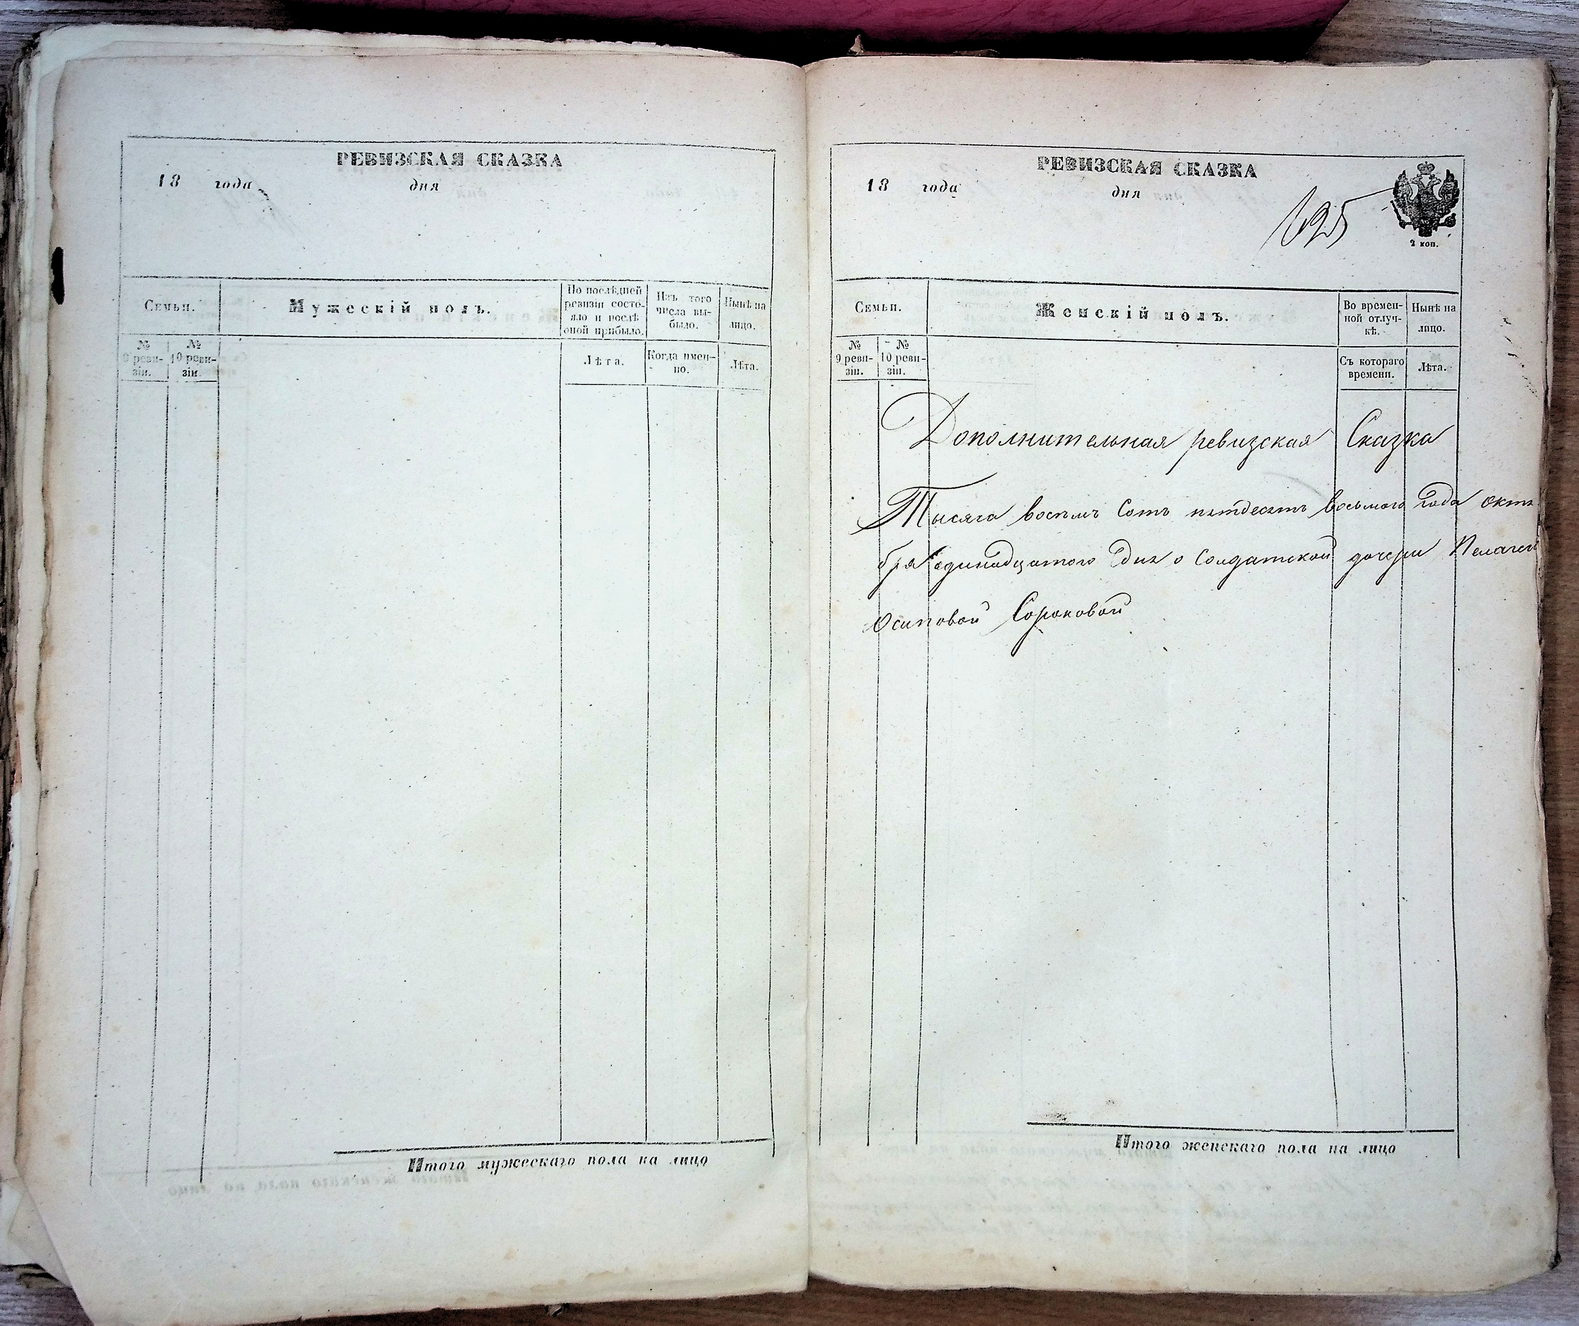 РЕВИЗСКАЯ СКАЗКА
18 года дня
Семьи.
Мужескій полъ.
По послѣдней
ревизіи состо-
яло и послѣ
оной прибыло.
Изъ того
числа вы-
было.
Нынѣ на
лицо.
№
9 реви-
зіи.
№
10 реви-
зіи.
Лѣта.
Когда имен-
но.
Лѣта.
Итого мужескаго пола на лицо
РЕВИЗСКАЯ СКАЗКА
18 года дня
2 коп.
Семьи.
Женскій полъ.
Во времен-
ной отлуч-
кѣ.
Нынѣ на
лицо.
№
9 реви-
зіи.
№
10 реви-
зіи.
Съ котораго
времени.
Лѣта.
Дополнительная ревизская Сказка
Тысяча восемь Сотъ пятдесятъ восьмого Года октя
бря единадцатого дня о Солдатской дочери Пелагеи
Осиповой Сороковой
Итого женскаго пола на лицо